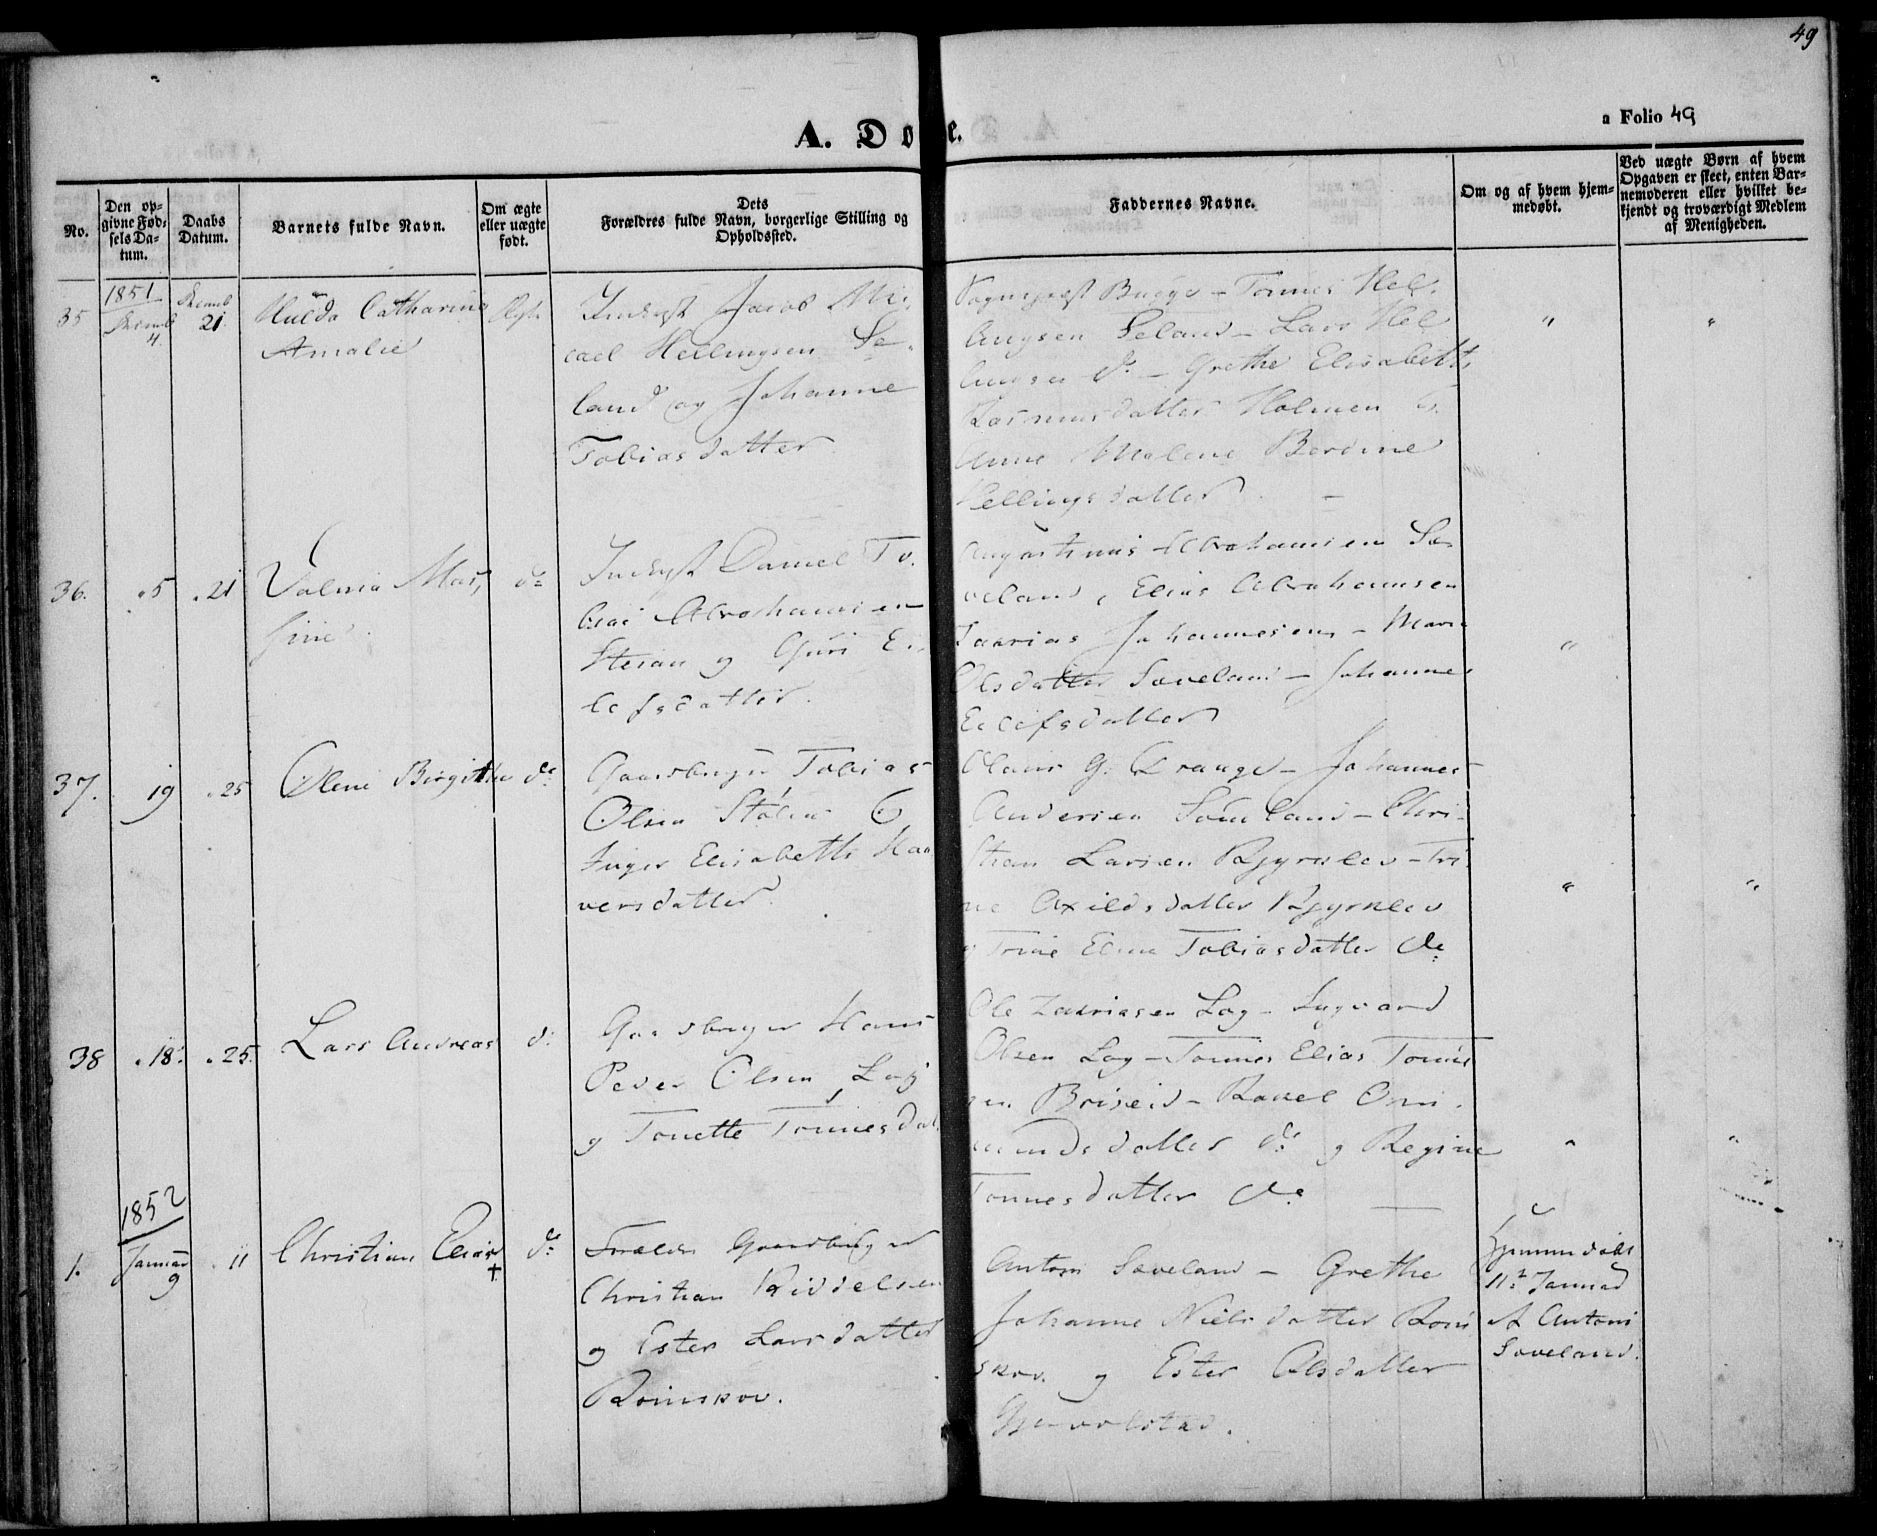 49
A. Døbte.
a Folio 49
No.
Den op-
givne Fød-
sels Da-
tum.
Daabs
Datum.
Barnets fulde Navn.
Om ægte
eller uægte
født.
Dets
Forældres fulde Navn, borgerlige Stilling og
Opholdssted.
Faddernes Navne.
Om og af hvem hjem-
medøbt.
Ved uægte Børn af hvem
Opgaven er skeet, enten Bar-
nemoderen eller hvilket be-
kjendt og troværdigt Medlem
af Menigheden.
1851
35
4.
21.
Hulda Catharina
Amalie
Ægte
Inderst Jacob Mi-
cael Hellingsen Se-
land og Johanne
Tobiasdatter
Sognepræst Bugge - Tonnes Hel-
lingsen Seland - Lars Hel
lingsen do - Grethe Elisabeth
Rasmusdatter Holmen &
Anne Malene Berdine
Hellingsdatter -
"
"
36.
" 5
" 21
Valeria Mar-
thine
do
Inderst Daniel To-
bias Abrahamsen
og Guri Ei-
lefsdatter.
Augustinus Abrahamsen Sæ-
veland, Elias Abrahamsen
Zakrias Johannesen - Maren
Olsdatter Sæveland - Johanne
Eilefsdatter
"
37.
19
" 25
Olene Birgithe
do
Gaardbruger Tobias
Olsen Stølen &
Inger Elisabeth Haa-
versdatter.
Olaus G. Drange - Johannes
Andersen Sæveland - Chri-
stian Larsen Kjyrklev - Tri-
ne Axildsdatter Kjyrklev
og Trine Eline Tobiasdatter do
"
"
38
" 18.
" 25.
Lars Andreas
do
Gaardbruger Hans
Peder Olsen Log
og Tonette Tonnesdat
Ole Zakriasen Log - Sigvard
Olsen Log - Tonnes Elias Tonnes
sen Briseid - Rakel Om-
mundsdatter do og Regine
Tonnesdatter do
"
"
1852
1.
Januar
9
" 11
Christian Elias
+
do
Gaardbruger
Christian Reiddelsen
og Ester Larsdatter
Romskov.
Anton Sæveland - Grethe
Johanne Nielsdatter Rom
skov. og Ester Olsdatter
Hjemmedøbt
11te Januar
af Anton
Sæveland.